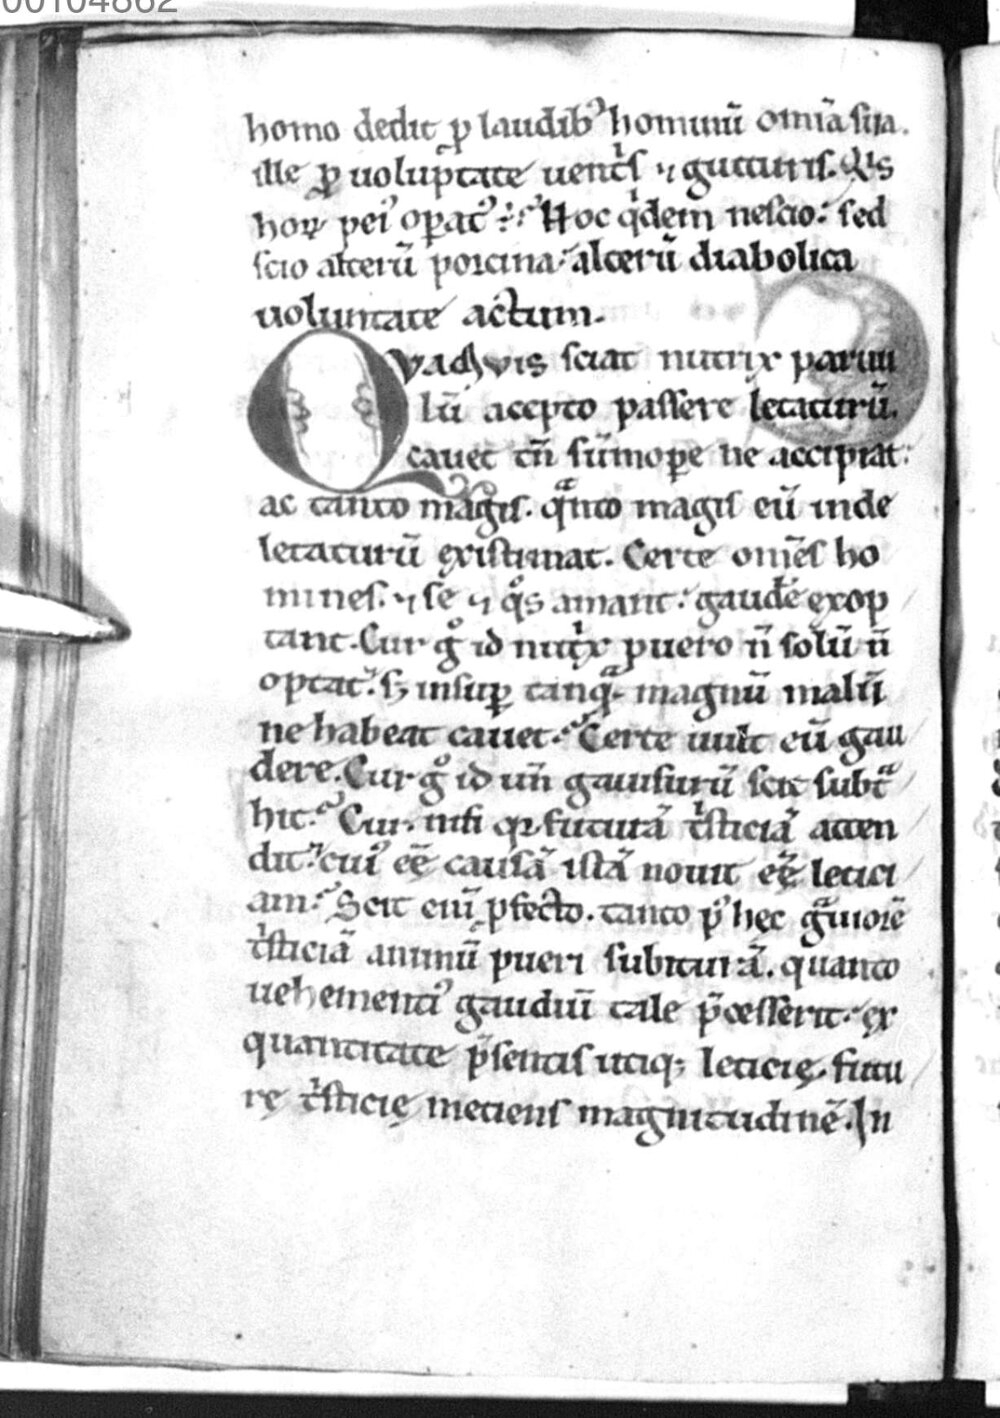 00104862
homo dedit ꝓ laudibꝰ hominū om̄ia sua.
ille ꝓ uoluptate uentͥs ⁊ gutturis. Qͥs
hoꝝ peiꝰ oꝑatꝰ? Hoc qͥdem nescio: sed
scio alterū porcina. alterū diabolica
uoluntate actum.
QVAMVIS sciat nutrix paruu
lū accepto passere letaturū.
cauet tn̄ sūmoꝑe ne accipiat:
ac tanto magis. qͣnto magis eū inde
letaturū ęxistimat. Certe om̄es ho
mines. ⁊ se ⁊ qͦs amant: gaudē ęxop
tant. Cur gͦ id nutͥx puero n̄ solū n̄
optat. sꝫ insuꝑ tanqͣ magnū malū
ne habeat cauet? Certe uult eū gau
dere. Cur gͦ id un̄ gauisurū scit subtͣ
hit? Cur. nisi qꝛ futurā tͥsticiā atten
dit: cuiꝰ eę̄ causā istā nouit eę̄ letici
am? Scit eni̅ ꝓfecto. tanto pꝰ hęc gͣuiorē
tͥsticiā animū pueri subiturā. quanto
uehementiꝰ gaudiū tale p̄cesserit. ęx
quantitate p̄sentis utiqꝫ leticię. futu
rę tͥsticię metiens magnitudinē. In